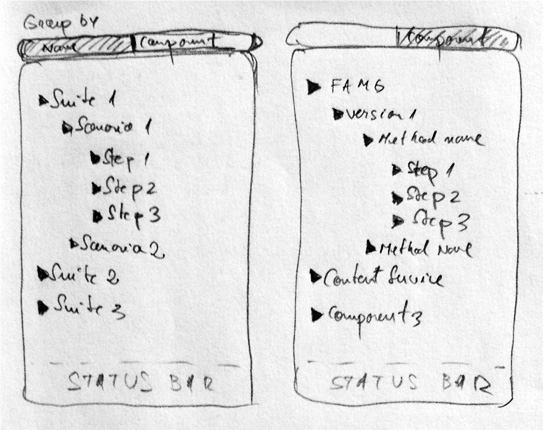 Group by
Name Component
Suite 1
Scenario 1
Step 1
Step 2
Step 3
Scenario 2
Suite 2
Suite 3
STATUS BAR
Component
FAMG
Version 1
Method name
Step 1
Step 2
Step 3
Method Name
Content Service
Component 3
STATUS BAR